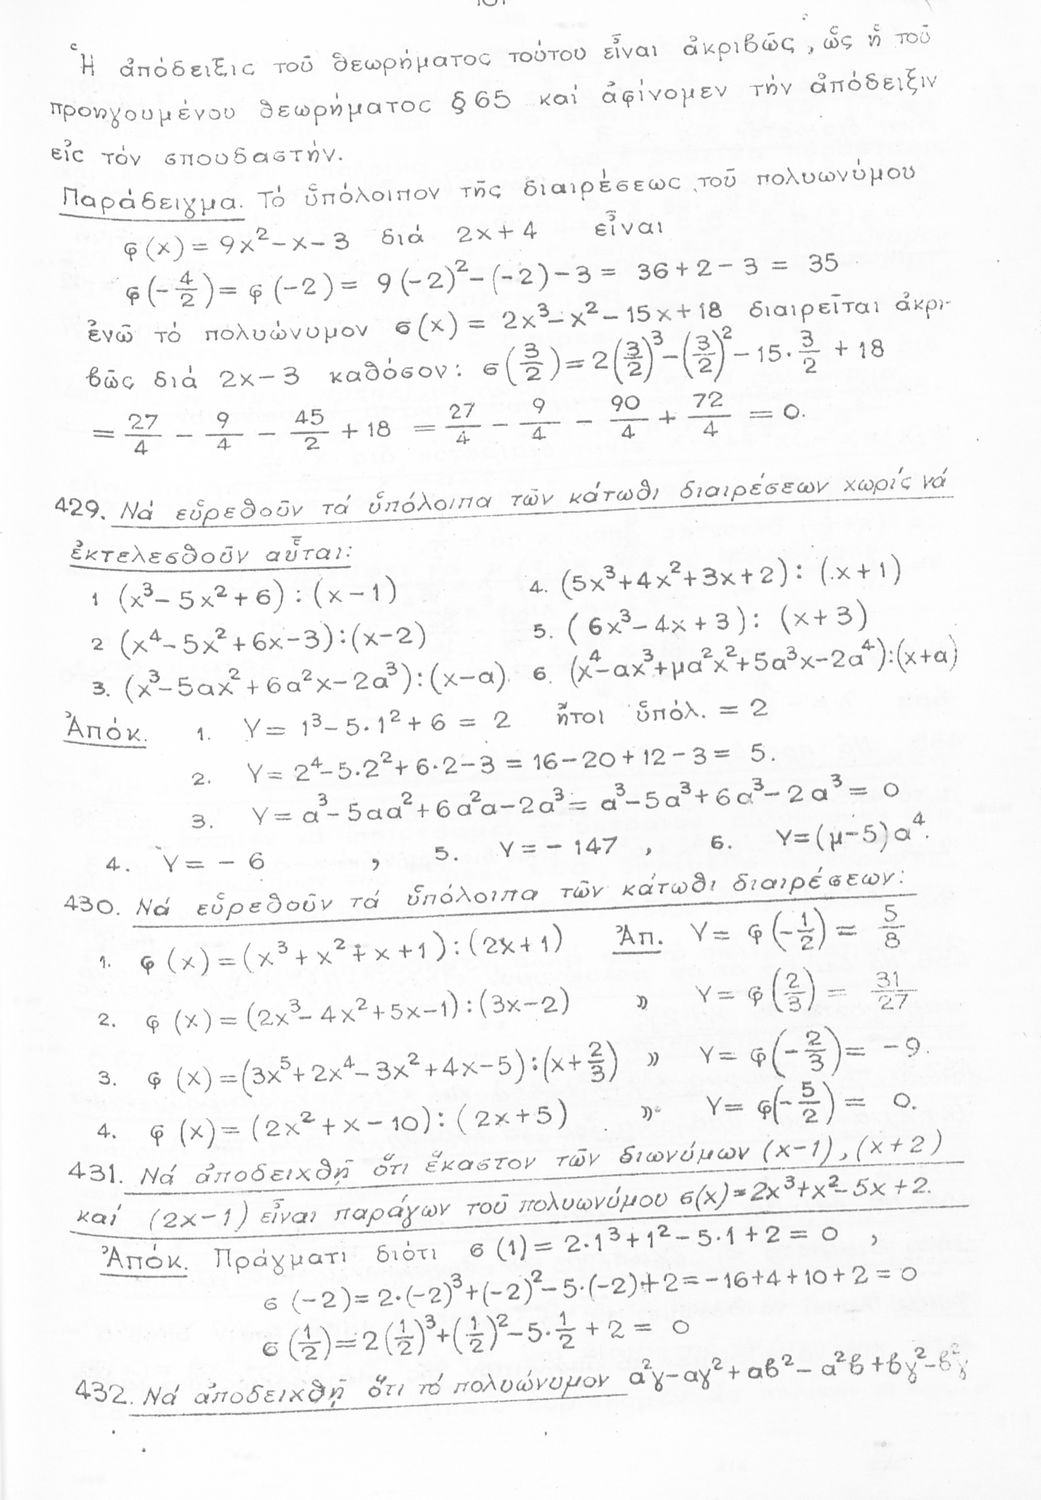 Ἡ ἀπόδειξις τοῦ θεωρήματος τούτου εἶναι ἀκριβῶς, ὡς ἡ τοῦ
προηγουμένου θεωρήματος § 65 καί ἀφίνομεν τήν ἀπόδειξιν
εἰς τόν σπουδαστήν.
Παράδειγμα. Τό ὑπόλοιπον τῆς διαιρέσεως τοῦ πολυωνύμου
φ(x) = 9x² - x - 3 διά 2x + 4 εἶναι
φ(-4/2) = φ(-2) = 9(-2)² - (-2) - 3 = 36 + 2 - 3 = 35
ἐνῶ τό πολυώνυμον σ(x) = 2x³ - x² - 15x + 18 διαιρεῖται ἀκρι-
βῶς διά 2x - 3 καθόσον: σ(3/2) = 2(3/2)³ - (3/2)² - 15·3/2 + 18
= 27/4 - 9/4 - 45/2 + 18 = 27/4 - 9/4 - 90/4 + 72/4 = 0.
429. Νά εὑρεθοῦν τά ὑπόλοιπα τῶν κάτωθι διαιρέσεων χωρίς νά
ἐκτελεσθοῦν αὗται:
1 (x³ - 5x² + 6) : (x - 1) 4. (5x³ + 4x² + 3x + 2) : (x + 1)
2 (x⁴ - 5x² + 6x - 3) : (x - 2) 5. (6x³ - 4x + 3) : (x + 3)
3. (x³ - 5αx² + 6α²x - 2α³) : (x - α) 6. (x⁴ - αx³ + μα²x² + 5α³x - 2α⁴) : (x + α)
Ἀπόκ. 1. Υ = 1³ - 5·1² + 6 = 2 ἤτοι ὑπόλ. = 2
2. Υ = 2⁴ - 5·2² + 6·2 - 3 = 16 - 20 + 12 - 3 = 5.
3. Υ = α³ - 5αα² + 6α²α - 2α³ = α³ - 5α³ + 6α³ - 2α³ = 0
4. Υ = - 6 , 5. Υ = - 147 , 6. Υ = (μ - 5)α⁴.
430. Νά εὑρεθοῦν τά ὑπόλοιπα τῶν κάτωθι διαιρέσεων:
1. φ (x) = (x³ + x² + x + 1) : (2x + 1) Ἀπ. Υ = φ(-1/2) = 5/8
2. φ (x) = (2x³ - 4x² + 5x - 1) : (3x - 2) » Υ = φ(2/3) = 31/27
3. φ (x) = (3x⁵ + 2x⁴ - 3x² + 4x - 5) : (x + 2/3) » Υ = φ(-2/3) = -9.
4. φ (x) = (2x² + x - 10) : (2x + 5) » Υ = φ(-5/2) = 0.
431. Νά ἀποδειχθῇ ὅτι ἕκαστον τῶν διωνύμων (x-1), (x+2)
καί (2x-1) εἶναι παράγων τοῦ πολυωνύμου σ(x) = 2x³ + x² - 5x + 2.
Ἀπόκ. Πράγματι διότι σ (1) = 2·1³ + 1² - 5·1 + 2 = 0 ,
σ (-2) = 2·(-2)³ + (-2)² - 5·(-2) + 2 = -16 + 4 + 10 + 2 = 0
σ (1/2) = 2(1/2)³ + (1/2)² - 5·1/2 + 2 = 0
432. Νά ἀποδειχθῇ ὅτι τό πολυώνυμον α²γ - αγ² + αβ² - α²β + βγ² - β²γ